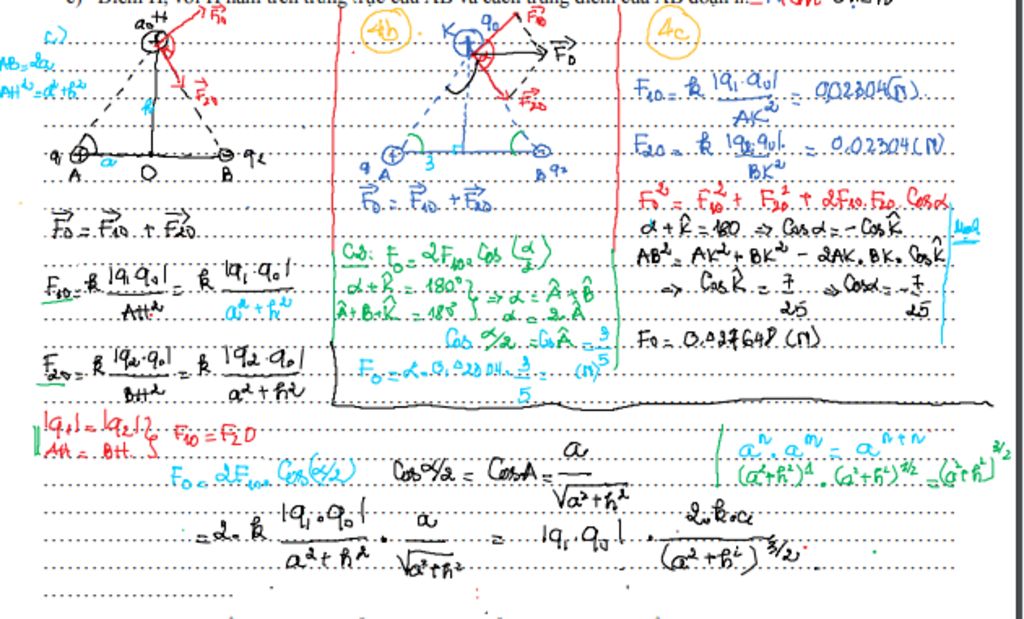 c)
AB=2a
AH²=a²+h²
q₀ H
F₁₀
F₂₀
h
q₁ a q₂
A O B
F₀ = F₁₀ + F₂₀
F₁₀ = k |q₁.q₀| / AH² = k |q₁.q₀| / a²+h²
F₂₀ = k |q₂.q₀| / BH² = k |q₂.q₀| / a²+h²
4b
K q₀ F₁₀
F₀
F₂₀
q₁ 3
A B q₂
F₀ = F₁₀ + F₂₀
C2: F₀ = 2F₁₀.Cos(α/2)
α + K̂ = 180°
Â+B̂+K̂ = 180° } ⇒ α = Â+B̂
α = 2.Â
Cos α/2 = Cos Â = 3/5
F₀ = 2.0,02304. 3/5 = (N)
4c
F₁₀ = k |q₁.q₀| / AK² = 0,02304(N).
F₂₀ = k |q₂.q₀| / BK² = 0,02304(N)
F₀² = F₁₀² + F₂₀² + 2F₁₀.F₂₀.Cosα
α + K̂ = 180 ⇒ Cosα = -CosK̂
AB² = AK² + BK² - 2AK.BK.CosK̂
⇒ CosK̂ = 7/25 ⇒ Cosα = -7/25
F₀ = 0,027648 (N)
|q₁| = |q₂|
AH = BH } F₁₀ = F₂₀
F₀ = 2F₁₀.Cos(α/2) Cosα/2 = CosA = a / √(a²+h²)
aⁿ.aᵐ = aⁿ⁺ᵐ
(a²+h²)¹.(a²+h²)^1/2 = (a²+h²)^3/2
= 2.k |q₁.q₀| / a²+h² . a / √(a²+h²) = |q₁.q₀| . 2.k.a / (a²+h²)^3/2.